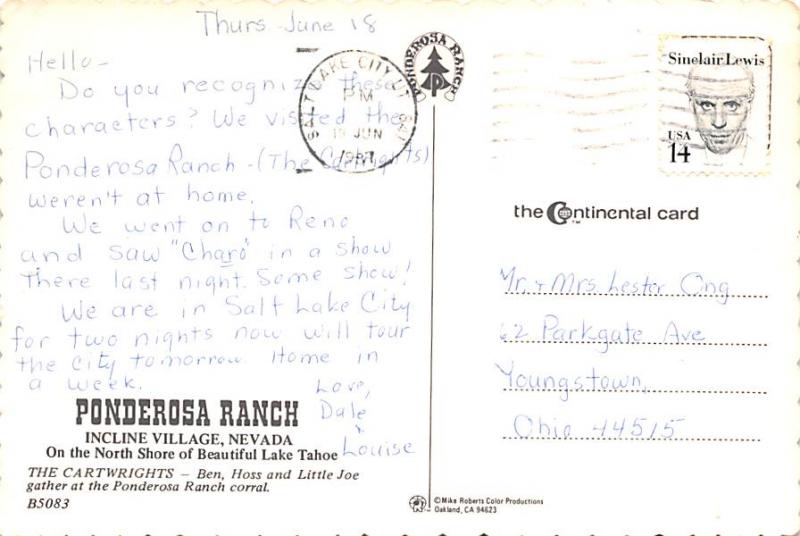 Thurs - June 18
Hello -
Do you recognize these
characters? We visited the
Ponderosa Ranch - (The Cartrights)
weren't at home.
We went on to Reno
and saw "Charo" in a show
there last night. Some show!
We are in Salt Lake City
for two nights now will tour
the city tomorrow. Home in
a week.
Love,
Dale
+ Louise
PONDEROSA RANCH
INCLINE VILLAGE, NEVADA
On the North Shore of Beautiful Lake Tahoe
THE CARTWRIGHTS – Ben, Hoss and Little Joe
gather at the Ponderosa Ranch corral.
B5083
SALT LAKE CITY, UT 841
PM
18 JUN
1987
PONDEROSA RANCH
P
Sinclair Lewis
USA
14
the Continental card
TM
Mr. + Mrs. Lester Ong
62 Parkgate Ave
Youngstown,
Ohio 44515
©Mike Roberts Color Productions
Oakland, CA 94623